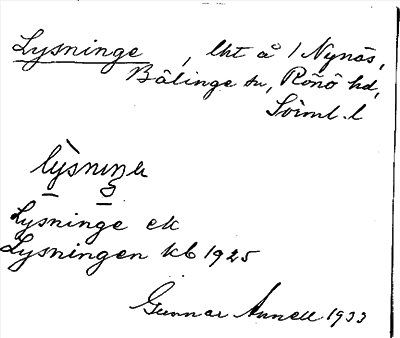 Lysninge, lht å / Nynäs,
Bälinge sn, Rönö hd,
Söiml. l
lỳsniŋe
Lysninge ek
Lysningen kb 1925
Gunnar Annell 1933